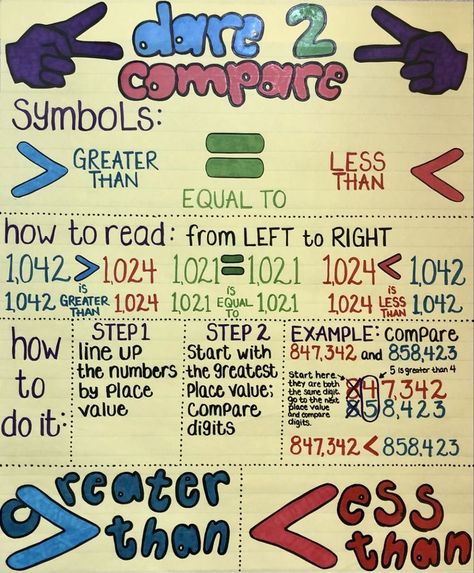 dare 2
compare
Symbols:
> GREATER THAN
= EQUAL TO
LESS THAN <
how to read: from LEFT to RIGHT
1,042 > 1,024 1,021 = 1,021 1,024 < 1,042
1,042 is GREATER THAN 1,024 1,021 is EQUAL TO 1,021 1,024 is LESS THAN 1,042
how
to
do it:
STEP 1
line up
the numbers
by Place
value
STEP 2
Start with
the greatest
Place value;
Compare
digits
EXAMPLE: Compare
847,342 and 858,423
Start here.
they are both
the same digit.
Go to the next
place value
and compare
digits.
5 is greater than 4
847,342
858,423
847,342 < 858,423
Greater
> than
< Less
than